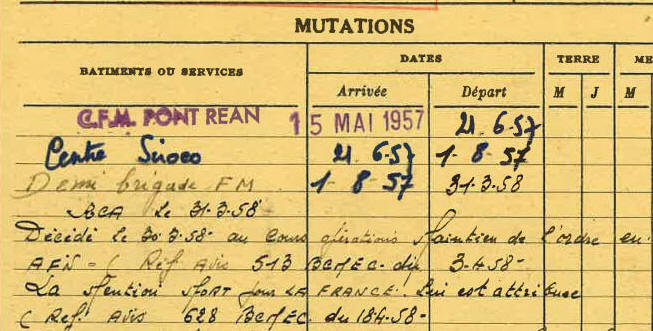 MUTATIONS
BATIMENTS OU SERVICES DATES TERRE ME
Arrivée Départ M J M
C.F.M. PONT REAN 15 MAI 1957 21. 6-57
Centre Siroco 21. 6-57 1-8-57
Demi brigade FM 1-8-57 31-3-58
RCA le 31-3-58
Décidé le 30-3-58- au cours opérations Maintien de l'ordre en.
AFN - ( Réf. Avis 513 BCMEC du 3-4-58-
La Mention MORT pour LA FRANCE. Lui est attribuée
( Ref. Avis 628 BCMEC du 18-4-58-